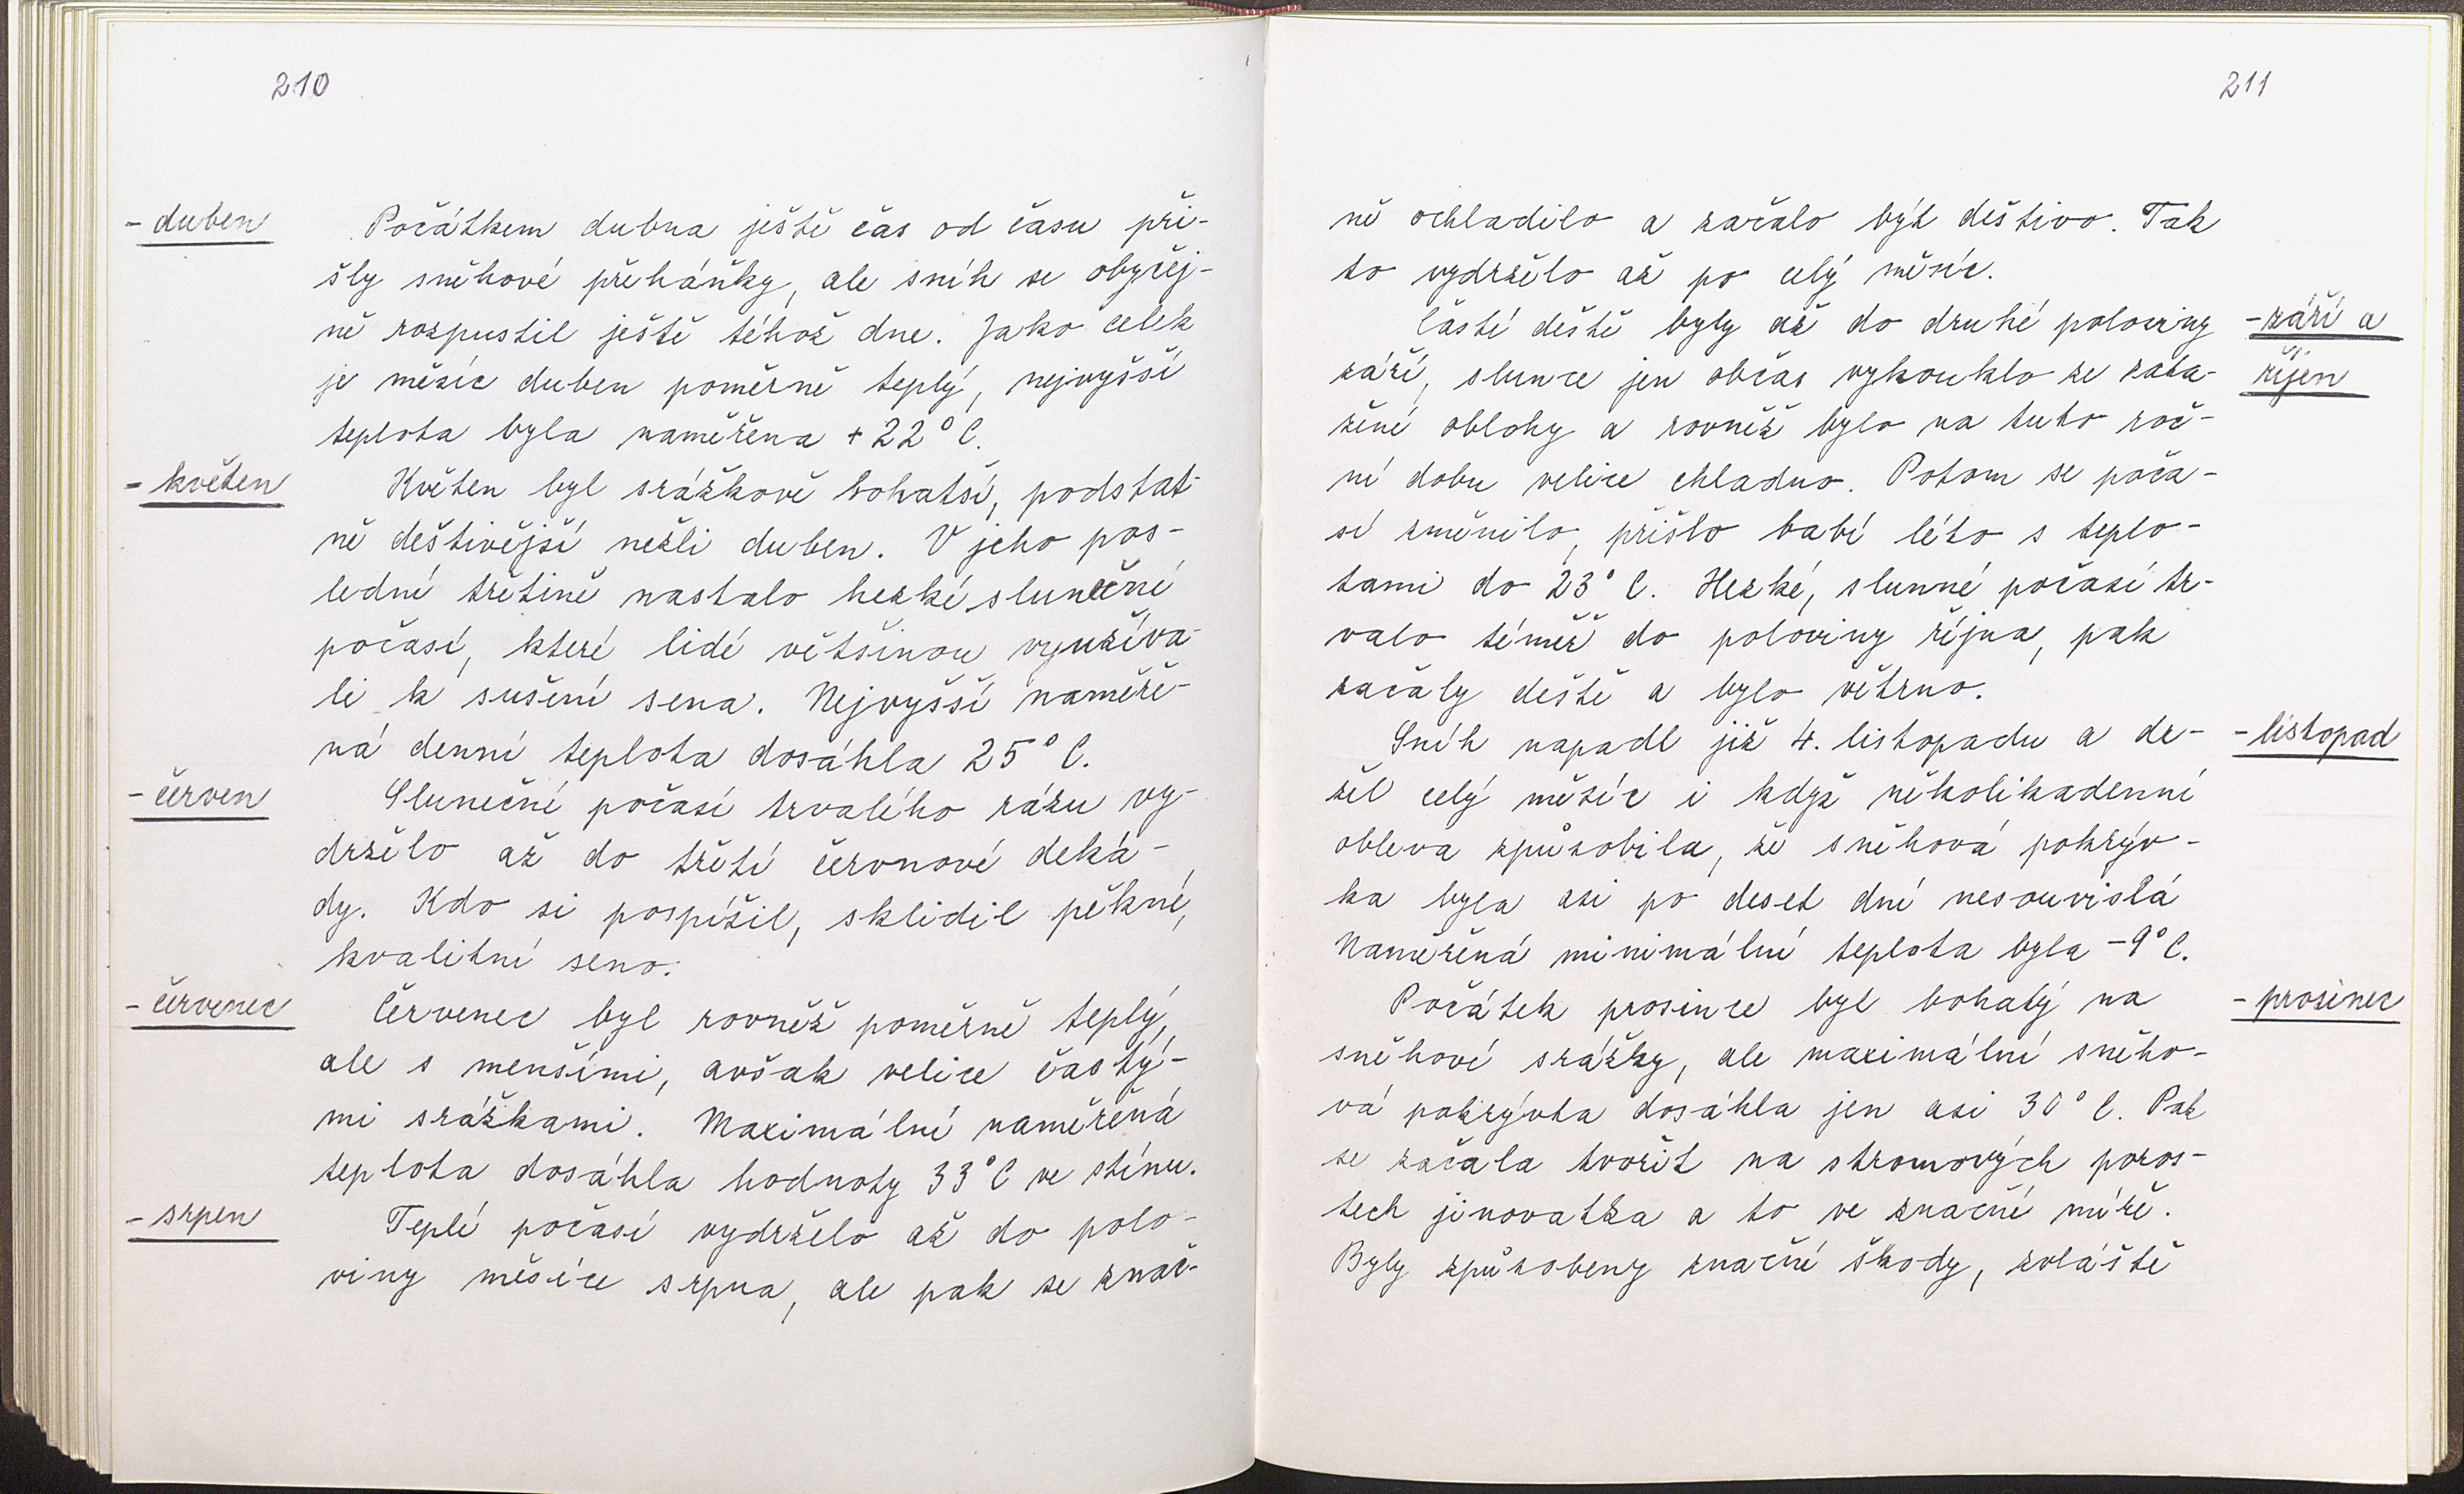 210
- duben
Počátkem dubna ještě čas od času při-
šly sněhové přeháňky, ale sníh se obyčej-
ně rozpustil ještě téhož dne. Jako celek
je měsíc duben poměrně teplý, nejvyšší
teplota byla naměřena +22°C.
- květen
Květen byl srážkově bohatší, podstat-
ně deštivější nežli duben. V jeho pos-
lední třetině nastalo hezké sluneční
počasí, které lidé většinou využíva-
li k sušení sena. Nejvyšší naměře-
ná denní teplota dosáhla 25°C.
- červen
Sluneční počasí trvalého rázu vy-
drželo až do třetí červnové deká-
dy. Kdo si pospíšil, sklidil pěkné,
kvalitní seno.
- červenec
Červenec byl rovněž poměrně teplý,
ale s menšími, avšak velice častý-
mi srážkami. Maximální naměřená
teplota dosáhla hodnoty 33°C ve stínu.
- srpen
Teplé počasí vydrželo až do polo-
viny měsíce srpna, ale pak se znač-
211
ně ochladilo a začalo být deštivo. Tak
to vydrželo až po celý měsíc.
- září a
říjen
Časté deště byly až do druhé poloviny
září, slunce jen občas vykouklo ze zata-
žené oblohy a rovněž bylo na tuto roč-
ní dobu velice chladno. Potom se poča-
sí změnilo, přišlo babí léto s teplo-
tami do 23°C. Hezké, slunné počasí tr-
valo téměř do poloviny října, pak
začaly deště a bylo větrno.
- listopad
Sníh napadl již 4. listopadu a dr-
žel celý měsíc i když několikadenní
obleva způsobila, že sněhová pokrýv-
ka byla asi po deset dní nesouvislá
Naměřená minimální teplota byla -9°C.
- prosinec
Počátek prosince byl bohatý na
sněhové srážky, ale maximální sněho-
vá pokrývka dosáhla jen asi 30°C. Pak
se začala tvořit na stromových poros-
tech jinovatka a to ve značné míře.
Byly způsobeny značné škody, zvláště